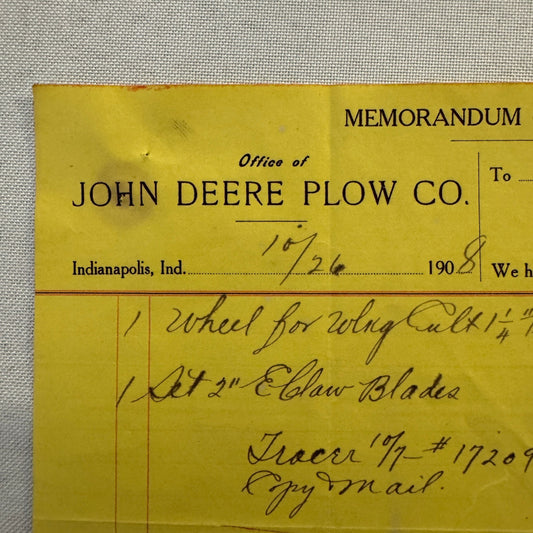 MEMORANDUM
Office of
JOHN DEERE PLOW CO.
To
Indianapolis, Ind. 10/26 1908
We h
1 Wheel for Wlkg Cult 1 1/4 "
1 Set 2" E Claw Blades
Tracer 10/7 - # 17209
Copy & Mail.